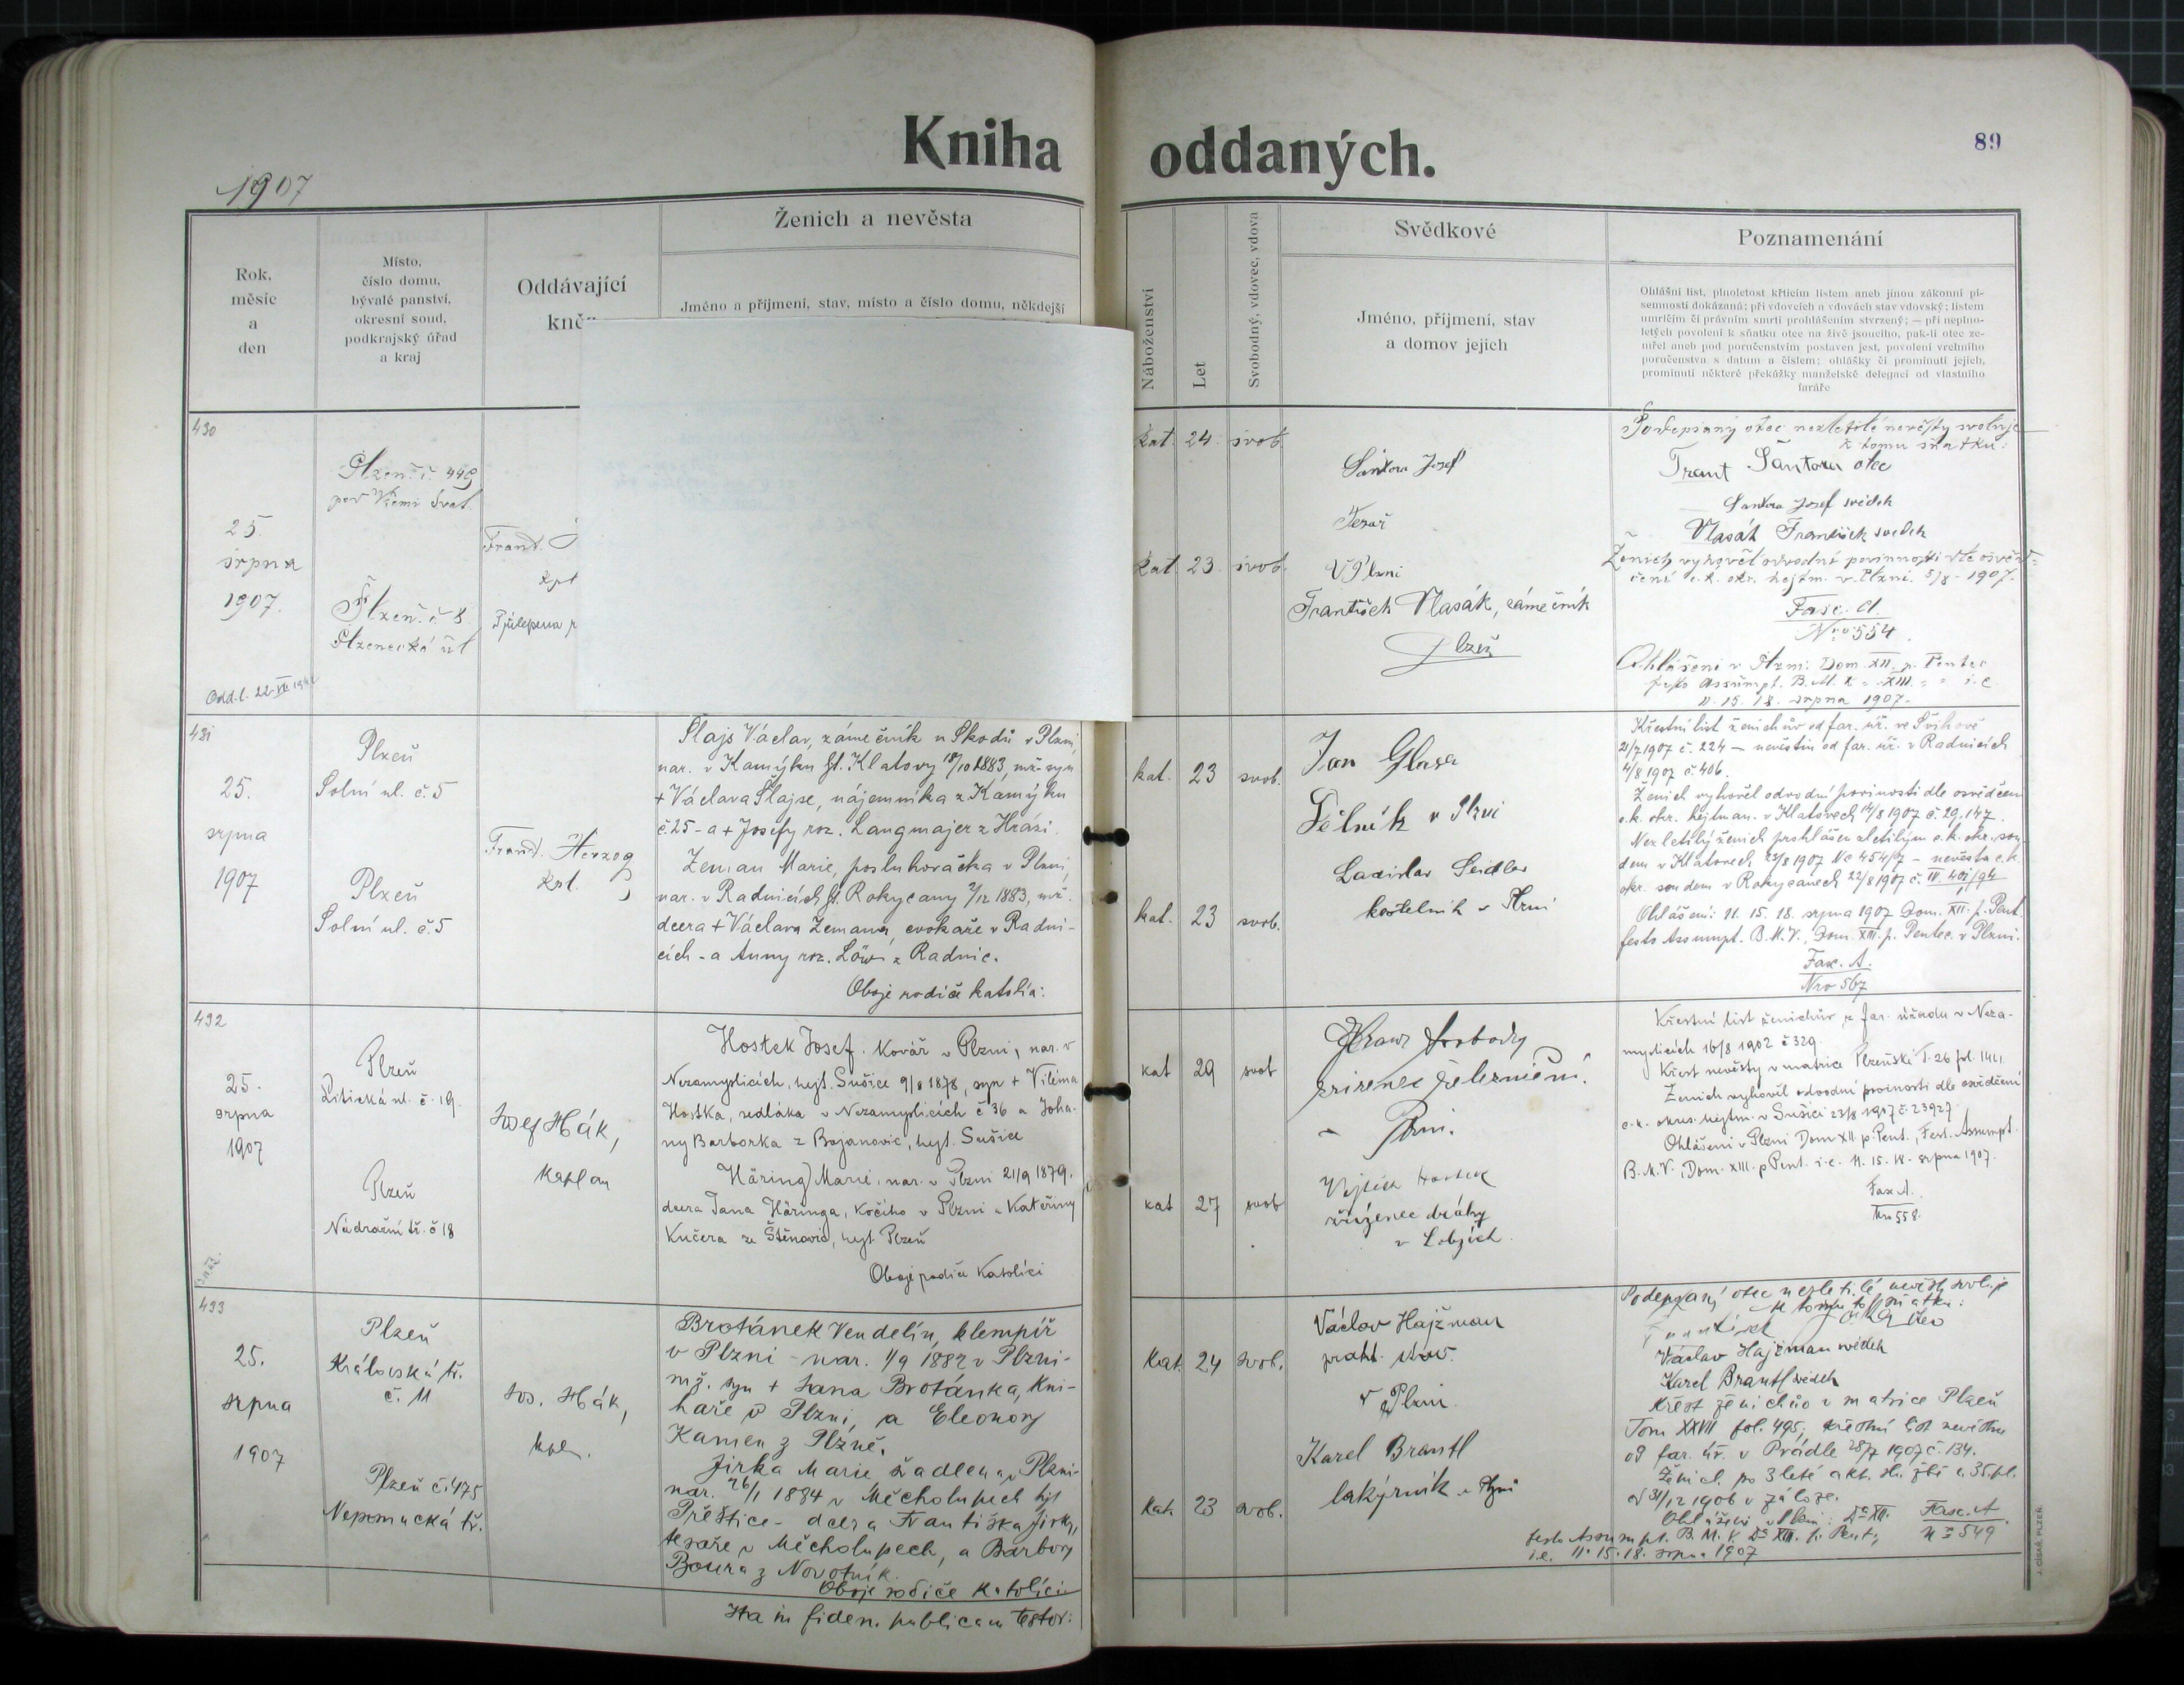 Kniha oddaných.
89
1907
Rok, měsíc a den
Místo, číslo domu, bývalé panství, okresní soud, podkrajský úřad a kraj
Oddávající
Ženich a nevěsta
Jméno a příjmení, stav, místo a číslo domu, někdejší
Náboženství
Let
Svobodný, vdovec, vdova
Svědkové
Jméno, příjmení, stav
a domov jejich
Poznamenání
Ohlášní list, plnoletost křticím listem aneb jinou zákonní pí-
semností dokázaná; při vdovcích a vdovách stav vdovský; listem
umrlčím či právním smrti prohlášením stvrzený; — při neplno-
letých povolení k sňatku otce na živě jsoucího, pak-li otec ze-
mřel aneb pod poručenstvím postaven jest, povolení vrchního
poručenstva s datum a číslem; ohlášky či prominutí jejich,
prominutí některé překážky manželské delegací od vlastního
faráře
430
25.
srpna
1907.
Plzeň č. 449
Plzeň č. 8
Plzenecká ul
Frant.
kpl
kat. 24. svob.
kat. 23. svob.
Šantora Josef
Tesař
V Plzni
František Vlasák, zámečník
Plzeň
Podepsaný otec nezletilé nevěsty svoluje
k tomu sňatku:
Frant Šantora otec
Šantora Josef svědek
Vlasák František svědek
Ženich vyhověl odvodní povinnosti dle osvěd-
čení c.k. okr. hejtm. v Plzni 5/8 1907.
Fasc. A.
Nro 554.
Ohlášení v Plzni: Dom. XII. p. Pentec
festo Assumpt. B.M.V. XIII. i.e
11. 15. 18. srpna 1907.
431
25.
srpna
1907
Plzeň
Solní ul. č. 5
Plzeň
Solní ul. č. 5
Frant. Herzog
kpl.
Šlajs Václav, zámečník u Škodů v Plzni,
nar. v Kamýku ht. Klatovy 18/10 1883, mž. syn
+ Václava Šlajse, nájemníka z Kamýku
č. 25 - a + Josefy roz. Langmajer z Hrází.
Zeman Marie, posluhovačka v Plzni,
nar. v Radnicích ht. Rokycany 2/12 1883, mž.
dcera + Václava Zemana, cvokaře v Radni-
cích - a Anny roz. Löwi z Radnic.
Oboje rodiče katolíci:
kat. 23 svob.
kat. 23 svob.
Jan Glasa
v Plzni
Ladislav Seidler
kostelník v Plzni
Křestní list ženichův od far. úř. ve Švihově
21/7 1907 č. 224 — nevěstin od far. úř. v Radnicích
4/8 1907 č. 406.
Ženich vyhověl odvodní povinnosti dle osvědčení
c.k. okr. hejtman. v Klatovech 14/8 1907 č. 29,147.
Nezletilý ženich prohlášen zletilým c.k. okr. sou
dem v Klatovech 23/8 1907 Nc 454/7 — nevěsta c.k.
okr. soudem v Rokycanech 22/8 1907 č. IV. 401/94
Ohlášení: 11. 15. 18. srpna 1907 Dom. XII. p. Pent.
festo Assumpt. B.M.V., Dom. XIII. p. Pentec. v Plzni.
Fasc. A.
Nro 567
432
25.
srpna
1907
Plzeň
Litická ul. č. 19.
Plzeň
Nádražní tř. č 18
Josef Hák,
kaplan
Hostek Josef. Kovář v Plzni, nar. v
Nezamyslicích, hejt. Sušice 9/8 1878, syn + Viléma
Hostka, sedláka v Nezamyslicích č 36 a Joha-
ny Barborka z Bojanovic, hejt. Sušice
Häring Marie, nar. v Plzni 21/9 1879.
dcera Jana Häringa, kočího v Plzni a Kateřiny
Kučera ze Štěnovic, hejt. Plzeň
Oboje rodiče Katolíci
kat 29 svob
kat 27 svob
Svoboda
Plzni.
Vojtěch Hostek
zřízenec dráhy
v Lobzích.
Křestní list ženichův z far. úřadu v Neza-
myslicích 16/8 1902 č 329.
Křest nevěsty v matrice Plzeňské T. 26 fol. 1461.
Ženich vyhověl odvodní povinosti dle osvědčení
c.k. okres. hejtm. v Sušici 23/8 1907 č. 23927.
Ohlášeni v Plzni Dom XII. p. Pent., Fest. Assumpt.
B.M.V., Dom. XIII. p. Pent. i.e. 11. 15. 18. srpna 1907.
Fasc A.
Nro 558.
433
25.
srpna
1907
Plzeň
Královská tř.
č. 11
Plzeň č. 475
Nepomucká tř.
Jos. Hák,
kpl.
Brotánek Vendelín, klempíř
v Plzni - nar. 1/9 1882 v Plzni -
mž. syn + Jana Brotánka, kni-
haře v Plzni, a Eleonory
Kamen z Plzně.
Jirka Marie švadlena v Plzni -
nar. 26/1 1884 v Měcholupech hjt
Přeštice - dcera Františka Jirky,
tesaře v Měcholupech, a Barbory
Boura z Novotnik.
Oboje rodiče katolíci
Ita in fidem publicam testor:
Kat. 24 svob.
Kat. 23 svob.
Václav Hajžman
v Plzni.
Karel Brantl
lakýrník v Plzni
Podepsaný otec nezletilé nevěsty svoluje
k tomuto sňatku:
František Jirka otec
Václav Hajžman svědek
Karel Brantl svědek
Křest ženichův v matrice Plzeň
Tom XXVII fol. 495, křestní list nevěstin
od far. úř. v Prádle 28/7 1907 č. 134.
od 31/12 1906 v záloze.
Ohlášení v Plzni: Dca XII. Fasc. A
festo Assumpt. B.M.V. Dca XIII. p. Pent., No 549
i.e. 11. 15. 18. srpna 1907
J. CÍSAŘ, PLZEŇ.